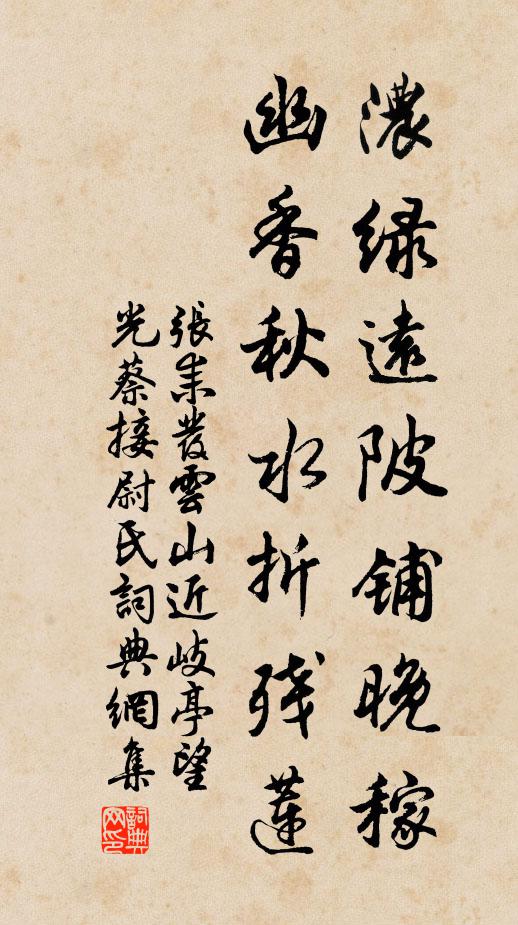 濃綠遠陂鋪晚稼
幽香秋水折殘蓮
張耒發雲山近岐亭望
光蔡接尉氏詞典網集
詞典
网印